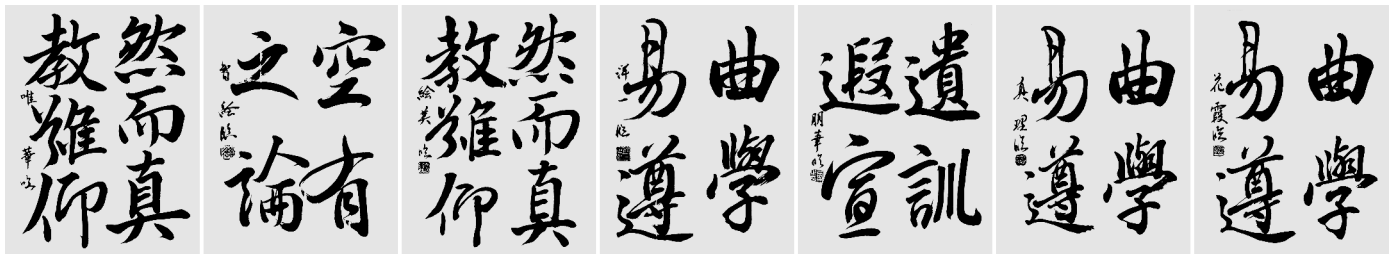 然而真
教雖仰
唯華臨
空有
之論
智絵臨
然而真
教雖仰
絵美臨
曲學
易遵
洋臨
遺訓
遐宣
明華臨
曲學
易遵
真理臨
曲學
易遵
花霞臨